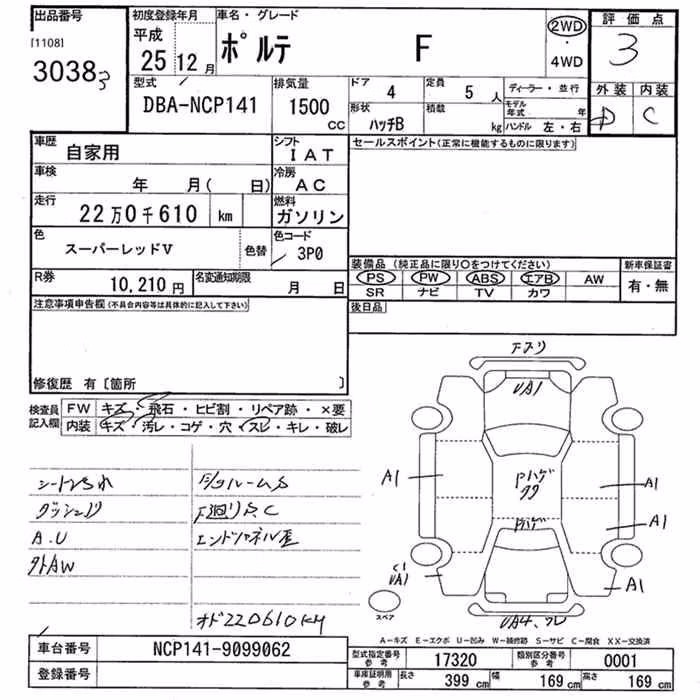 出品番号
[1108]
3038
初度登録年月
平成
25年12月
車名・グレード
ポルテ F
2WD
・
4WD
評価点
3
外装 内装
D C
型式
DBA-NCP141
排気量
1500
CC
ドア
4
定員
5人
形状
ハッチB
積載
kg
ディーラー・並行
モデル年式 年
ハンドル 左・右
車歴
自家用
シフト
IAT
車検
年 月( 日)
冷房
AC
走行
22万0千610 km
燃料
ガソリン
色
スーパーレッドV
色替
色コード
3P0
R券
10,210円
名変通知期限
月 日
セールスポイント(正常に機能するものに限ります)
装備品 (純正品に限り○をつけてください)
PS PW ABS エアB AW
SR ナビ TV カワ
新車保証書
有・無
後日品
注意事項申告欄(不具合内容等は具体的に記入して下さい)
修復歴 有〔箇所 〕
検査員
記入欄
FW キズ・飛石・ヒビ割・リペア跡・×要
内装 キズ・汚レ・コゲ・穴・スレ・キレ・破レ
A.U
外AW
下廻りS.C
オド220610KM
UA1
A1
A1
A1
Pハゲ
Pハゲ
UA1
A1
スペア
A-キズ E-エクボ U-凹み W-補修跡 S-サビ C-腐食 XX-交換済
車台番号
NCP141-9099062
登録番号
型式指定番号
参考
17320
類別区分番号
参考
0001
車庫証明用
参考
長さ 399cm
幅 169cm
高さ 169cm